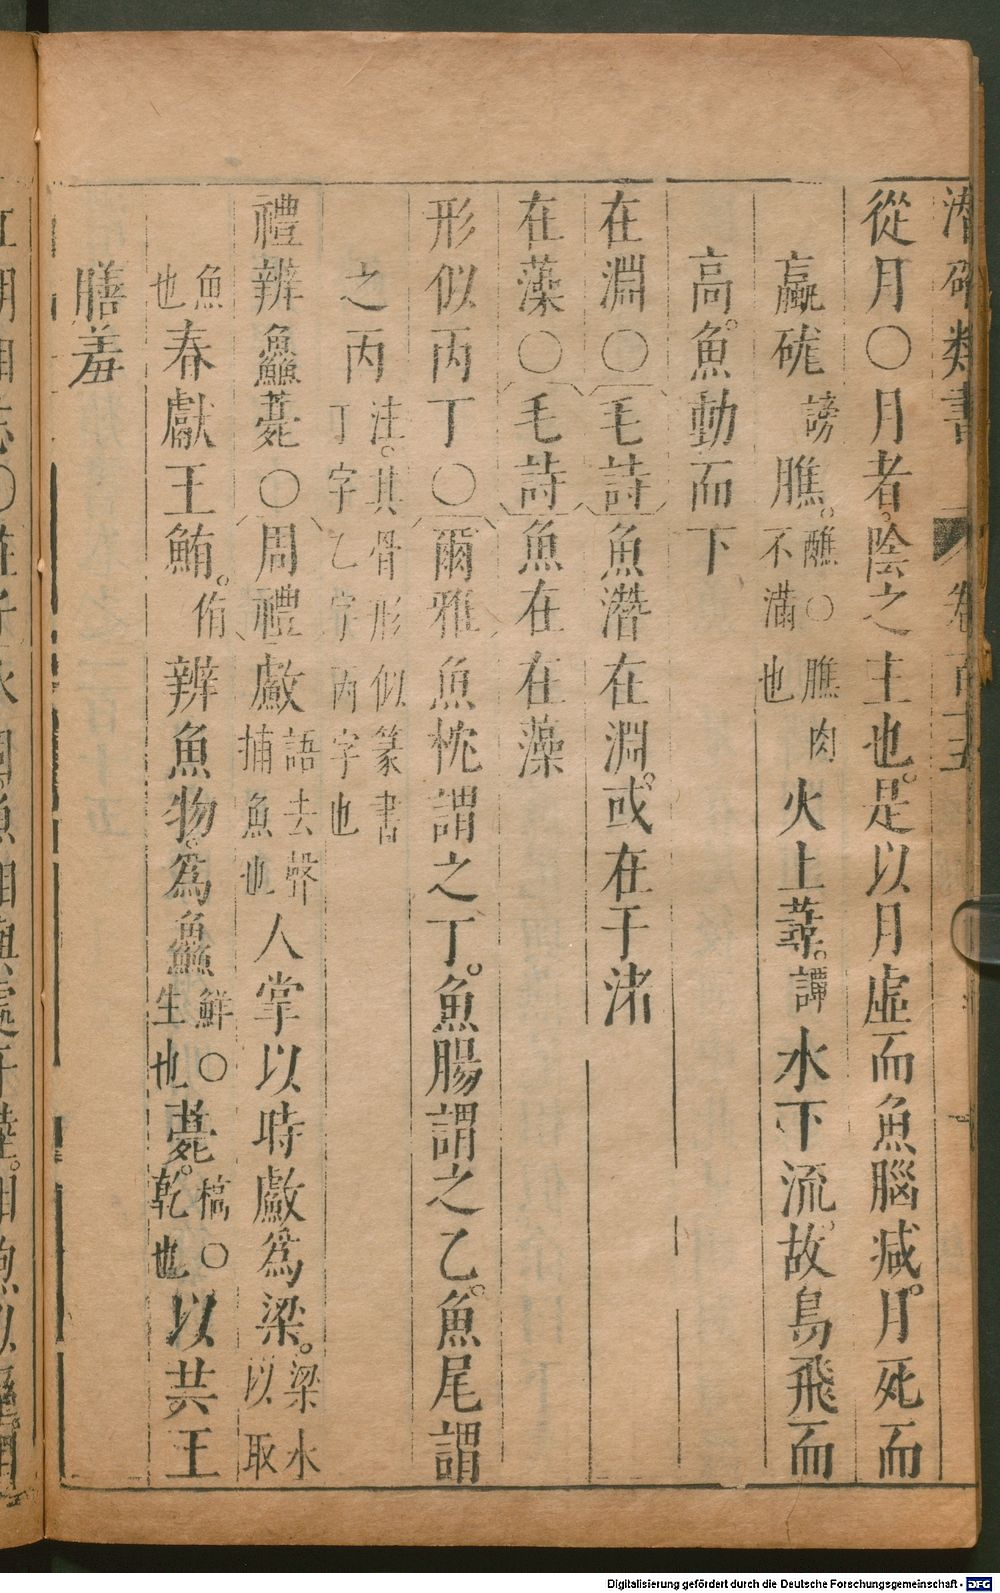 潛確類書 卷百十五
從月○月者。陰之主也。是以月虛而魚腦減。月死而
蠃硥謗膲。醮○膲肉不滿也火上蕁。譚水下流。故鳥飛而
高。魚動而下
在淵○毛詩魚潛在淵。或在于渚
在藻○毛詩魚在在藻
形似丙丁○爾雅魚枕謂之丁。魚腸謂之乙。魚尾謂
之丙注。其骨形似篆書丁字乙字丙字也
禮辨鱻薧○周禮䱷語去聲捕魚也人掌以時䱷為梁。梁水以取
魚也春獻王鮪。侑辨魚物。為鱻鮮○生也薧。槁○乾也以共王
膳羞
Digitalisierung gefördert durch die Deutsche Forschungsgemeinschaft - DFG